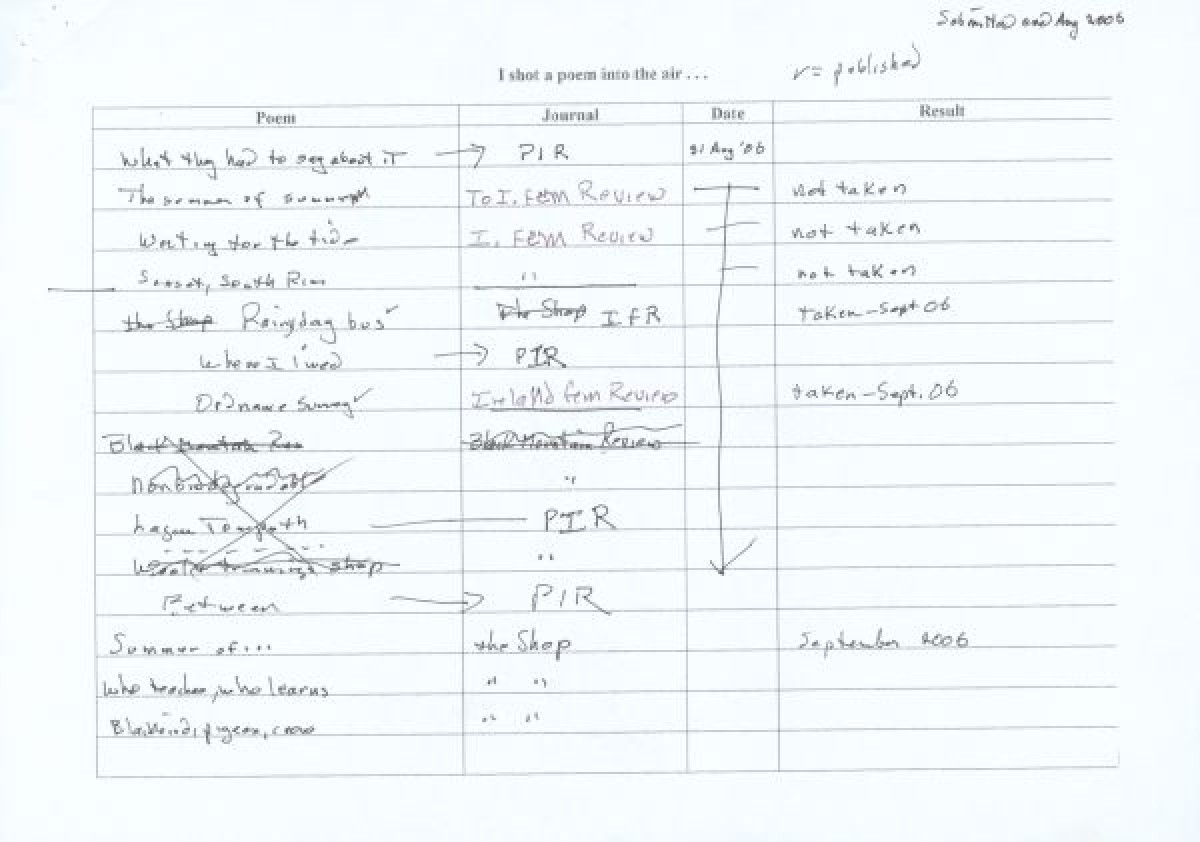 Submitted end Aug 2006
I shot a poem into the air . . .
✓ = published
Poem Journal Date Result
What they had to say about it → PIR 31 Aug '06
The summer of To I. Fem Review not taken
Waiting for the tide I. Fem Review not taken
Sunset, South Rim " not taken
the Shop Rainy day bus ✓ The Shop IFR taken - Sept 06
Where I lived → PIR
Ordnance Survey ✓ Ireland Fem Review taken - Sept. 06
Black Mountain Review
"
PIR
shop "
Between → PIR
Summer of ... the Shop September 2006
Who teaches, who learns " "
Blackbird, pigeon, crow " "